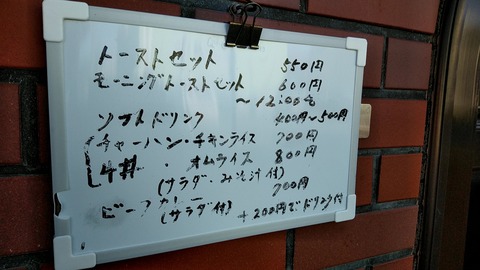 トーストセット 550円
モーニングトーストセット 600円
〜12:00迄
ソフトドリンク 400円〜500円
チャーハン・チキンライス 700円
牛丼・オムライス 800円
(サラダ・みそ汁付)
ビーフカレー 700円
(サラダ付) +200円でドリンク付